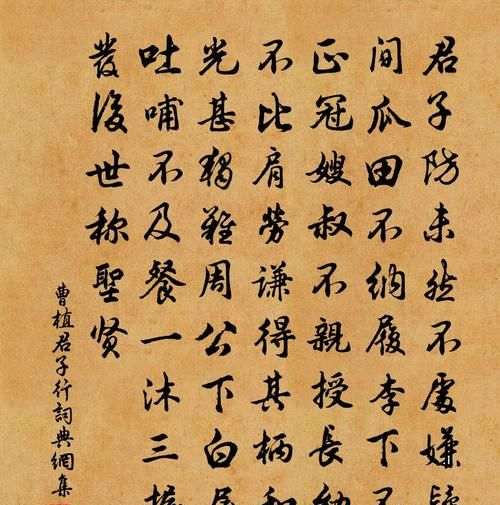 君子防未然不處嫌疑
間瓜田不納履李下不
正冠嫂叔不親授長幼
不比肩勞謙得其柄和
光甚獨難周公下白屋
吐哺不及餐一沐三握
發後世称聖賢
曹植君子行詞典網集